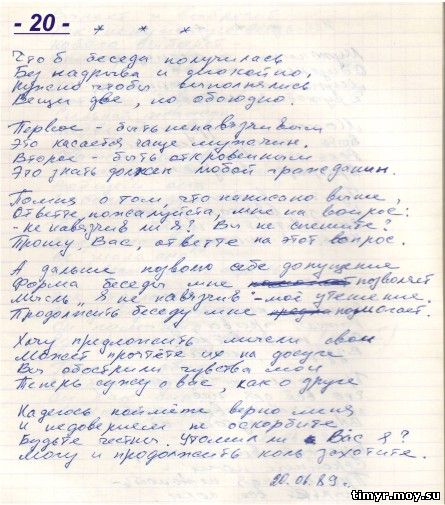 - 20 -
* * *
Что б беседа получилась
Без надрыва и спокойно,
Нужно чтобы выполнялись
Вещи две, но обоюдно.
Первое - быть ненавязчивым
Это касается чаще мужчин.
Второе - быть откровенным
Это знать должен любой гражданин.
Помня о том, что написано выше,
Ответте, пожалуйста, мне на вопрос:
- не навязчив ли я? Вы не спешите?
Прошу, Вас, ответте на этот вопрос.
А дальше позволю себе допущение
Форма беседы мне позволяет
Мысль "Я не навязчив" - моё утешение.
Продолжить беседу мне помогает.
Хочу предложить мысли свои
Может прочтёте их на досуге
Вы обострили чувства мои
Теперь сужу о вас, как о друге
Надеюсь поймёте верно меня
И недоверием не оскорбите
Будьте честны. Утомил ли Вас я?
Могу и продолжить коль захотите.
20.06.89г.
timyr.moy.su